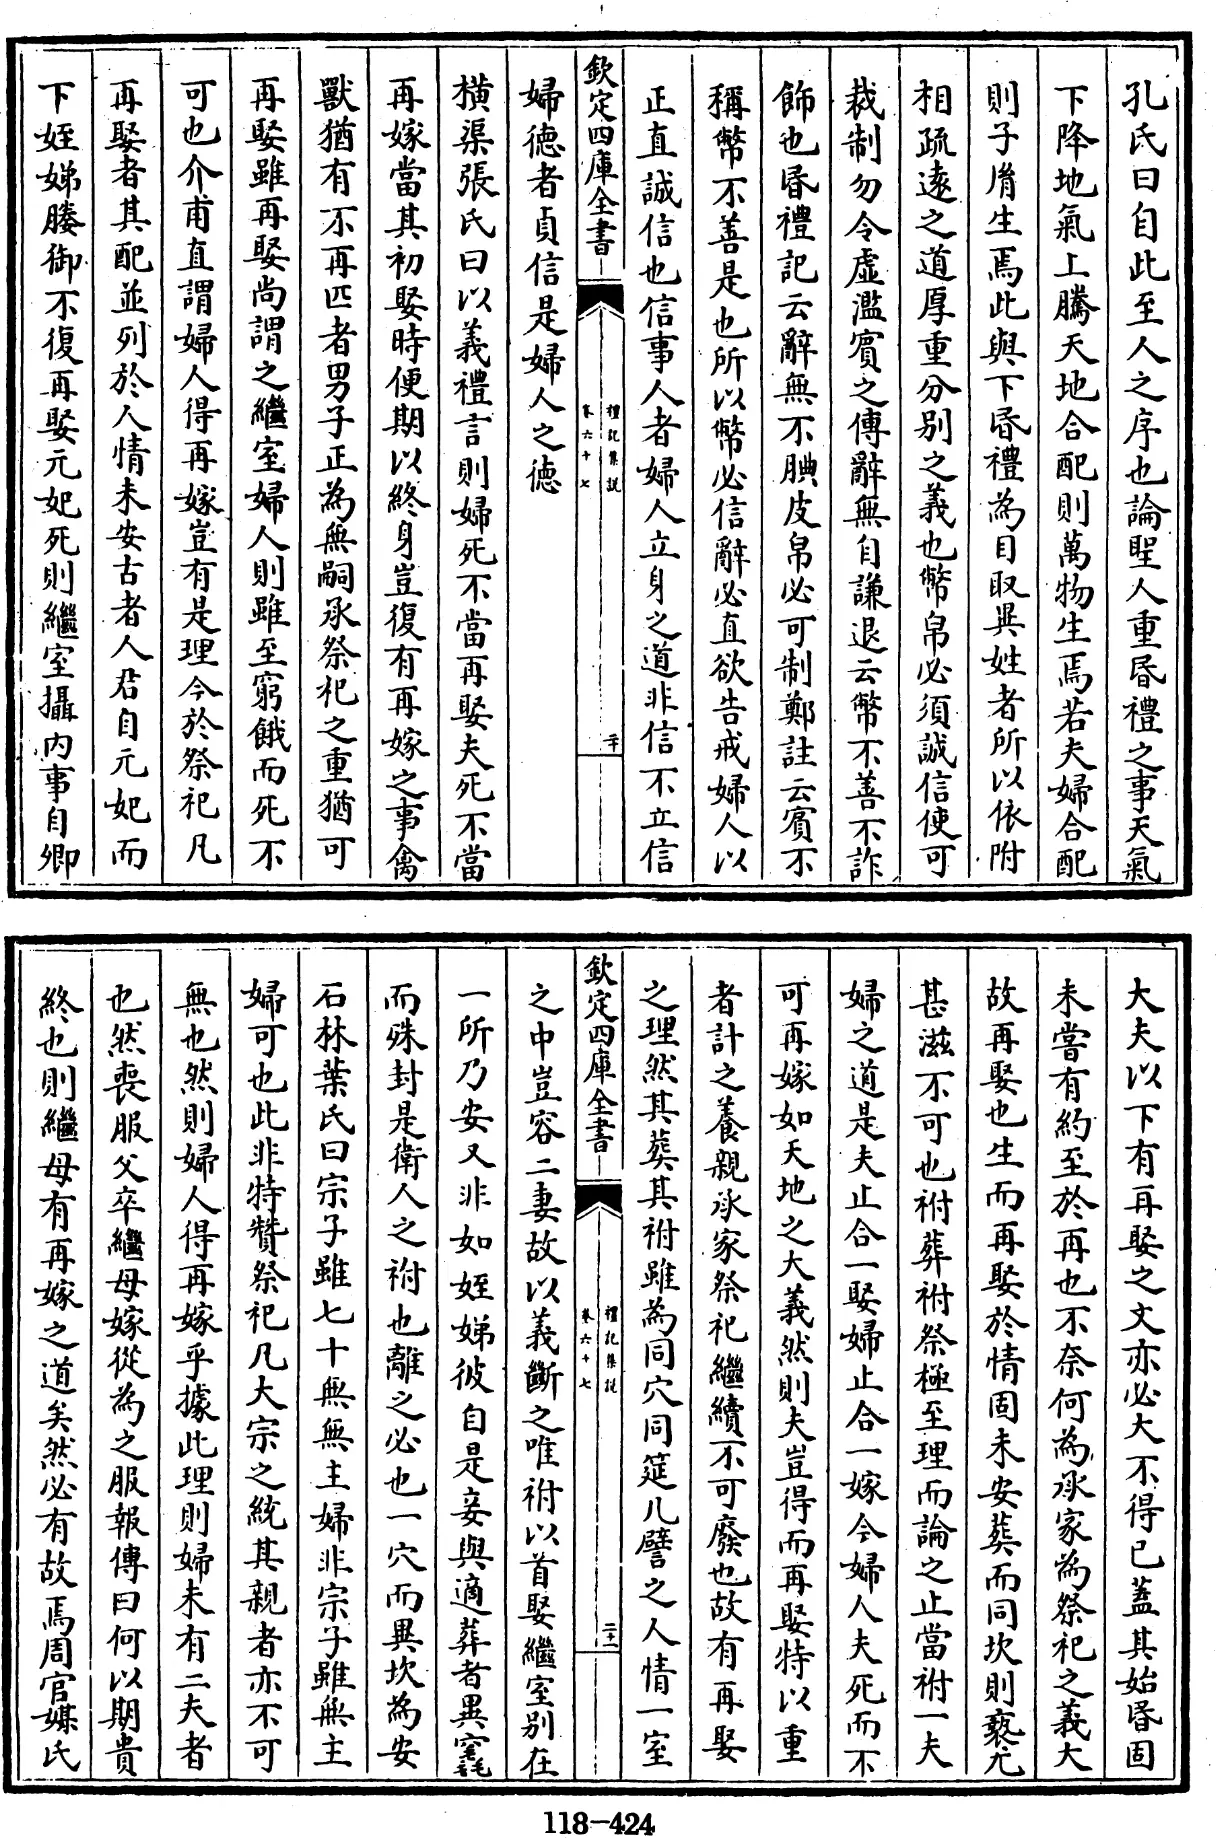 孔氏曰自此至人之序也論聖人重昏禮之事天氣
下降地氣上騰天地合配則萬物生焉若夫婦合配
則子胤生焉此與下昏禮為目取異姓者所以依附
相疏逺之道厚重分别之義也幣帛必須誠信使可
裁制勿令虚濫賔之傳辭無自謙退云幣不善不詐
飾也昏禮記云辭無不腆皮帛必可制鄭註云賔不
稱幣不善是也所以幣必信辭必直欲告戒婦人以
正直誠信也信事人者婦人立身之道非信不立信
欽定四庫全書
禮記集說
卷六十七
二十
婦德者貞信是婦人之德
横渠張氏曰以義禮言則婦死不當再娶夫死不當
再嫁當其初娶時便期以終身豈復有再嫁之事禽
獸猶有不再匹者男子正為無嗣承祭祀之重猶可
再娶雖再娶尚謂之繼室婦人則雖至窮餓而死不
可也介甫直謂婦人得再嫁豈有是理今於祭祀凡
再娶者其配並列於人情未安古者人君自元妃而
下姪娣媵御不復再娶元妃死則繼室攝内事自卿
大夫以下有再娶之文亦必大不得已葢其始昏固
未嘗有約至於再也不奈何為承家為祭祀之義大
故再娶也生而再娶於情固未安葬而同坎則褻尤
甚滋不可也祔葬祔祭極至理而論之止當祔一夫
婦之道是夫止合一娶婦止合一嫁今婦人夫死而不
可再嫁如天地之大義然則夫豈得而再娶特以重
者計之養親承家祭祀繼續不可廢也故有再娶
之理然其葬其祔雖為同穴同筵几譬之人情一室
欽定四庫全書
禮記集說
卷六十七
二十一
之中豈容二妻故以義斷之唯祔以首娶繼室别在
一所乃安又非如姪娣彼自是妾與適葬者異窆
而殊封是衛人之祔也離之必也一穴而異坎為安
石林葉氏曰宗子雖七十無無主婦非宗子雖無主
婦可也此非特贊祭祀凡大宗之統其親者亦不可
無也然則婦人得再嫁乎據此理則婦未有二夫者
也然喪服父卒繼母嫁從為之服報傳曰何以期貴
終也則繼母有再嫁之道矣然必有故焉周官媒氏
118-424